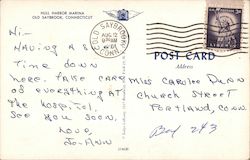 HULL HARBOR MARINA
OLD SAYBROOK, CONNECTICUT
OLD SAYBROOK
AUG 12
CONN.
Hi -
HAVING A
TIME DOWN
HERE. TAKE CARE
OF EVERYTHING AT
THE HOSPITAL.
SEE YOU SOON,
LOVE,
JO-ANN
POST CARD
Address
MISS CAROLEE DUNN
CHURCH STREET
PORTLAND, CONN.
Box 243